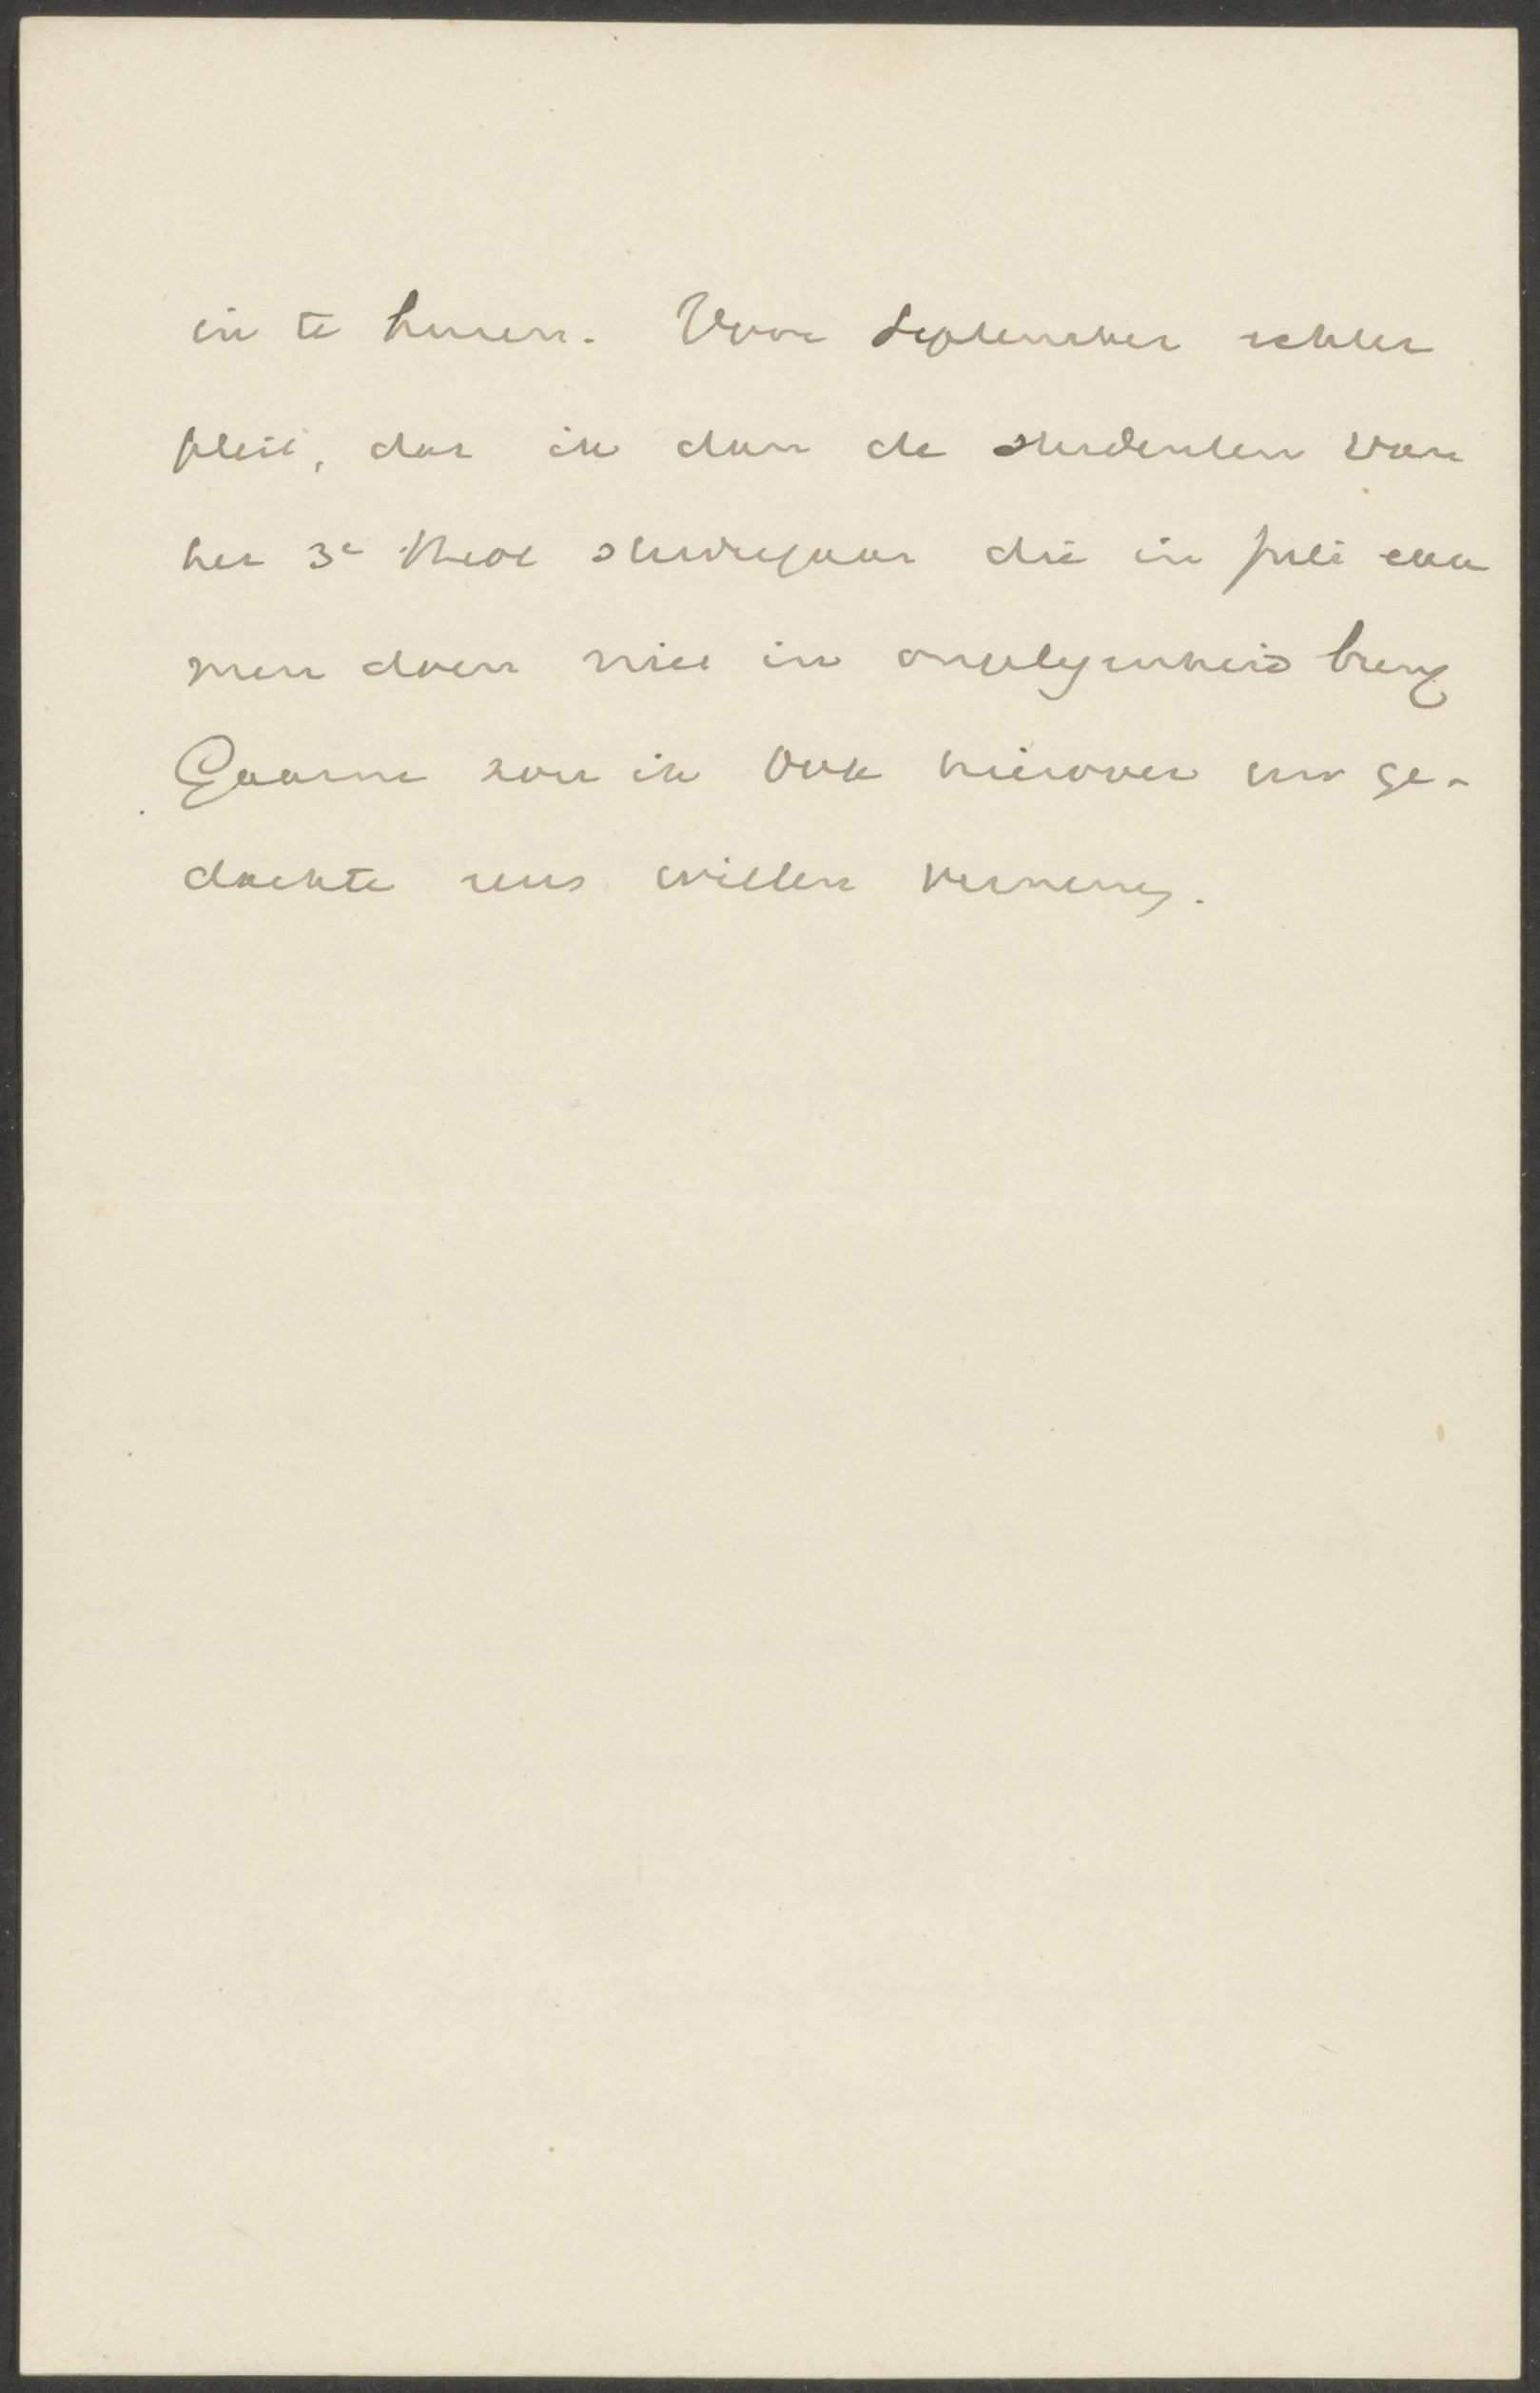 in te huren. Voor September echter
pleit, dat ik dan de studenten van
het 3e theol studiejaar die in juli exa
men doen niet in ongelegenheid breng
Gaarne zou ik ook hierover uw ge-
dachte eens willen vernemen.